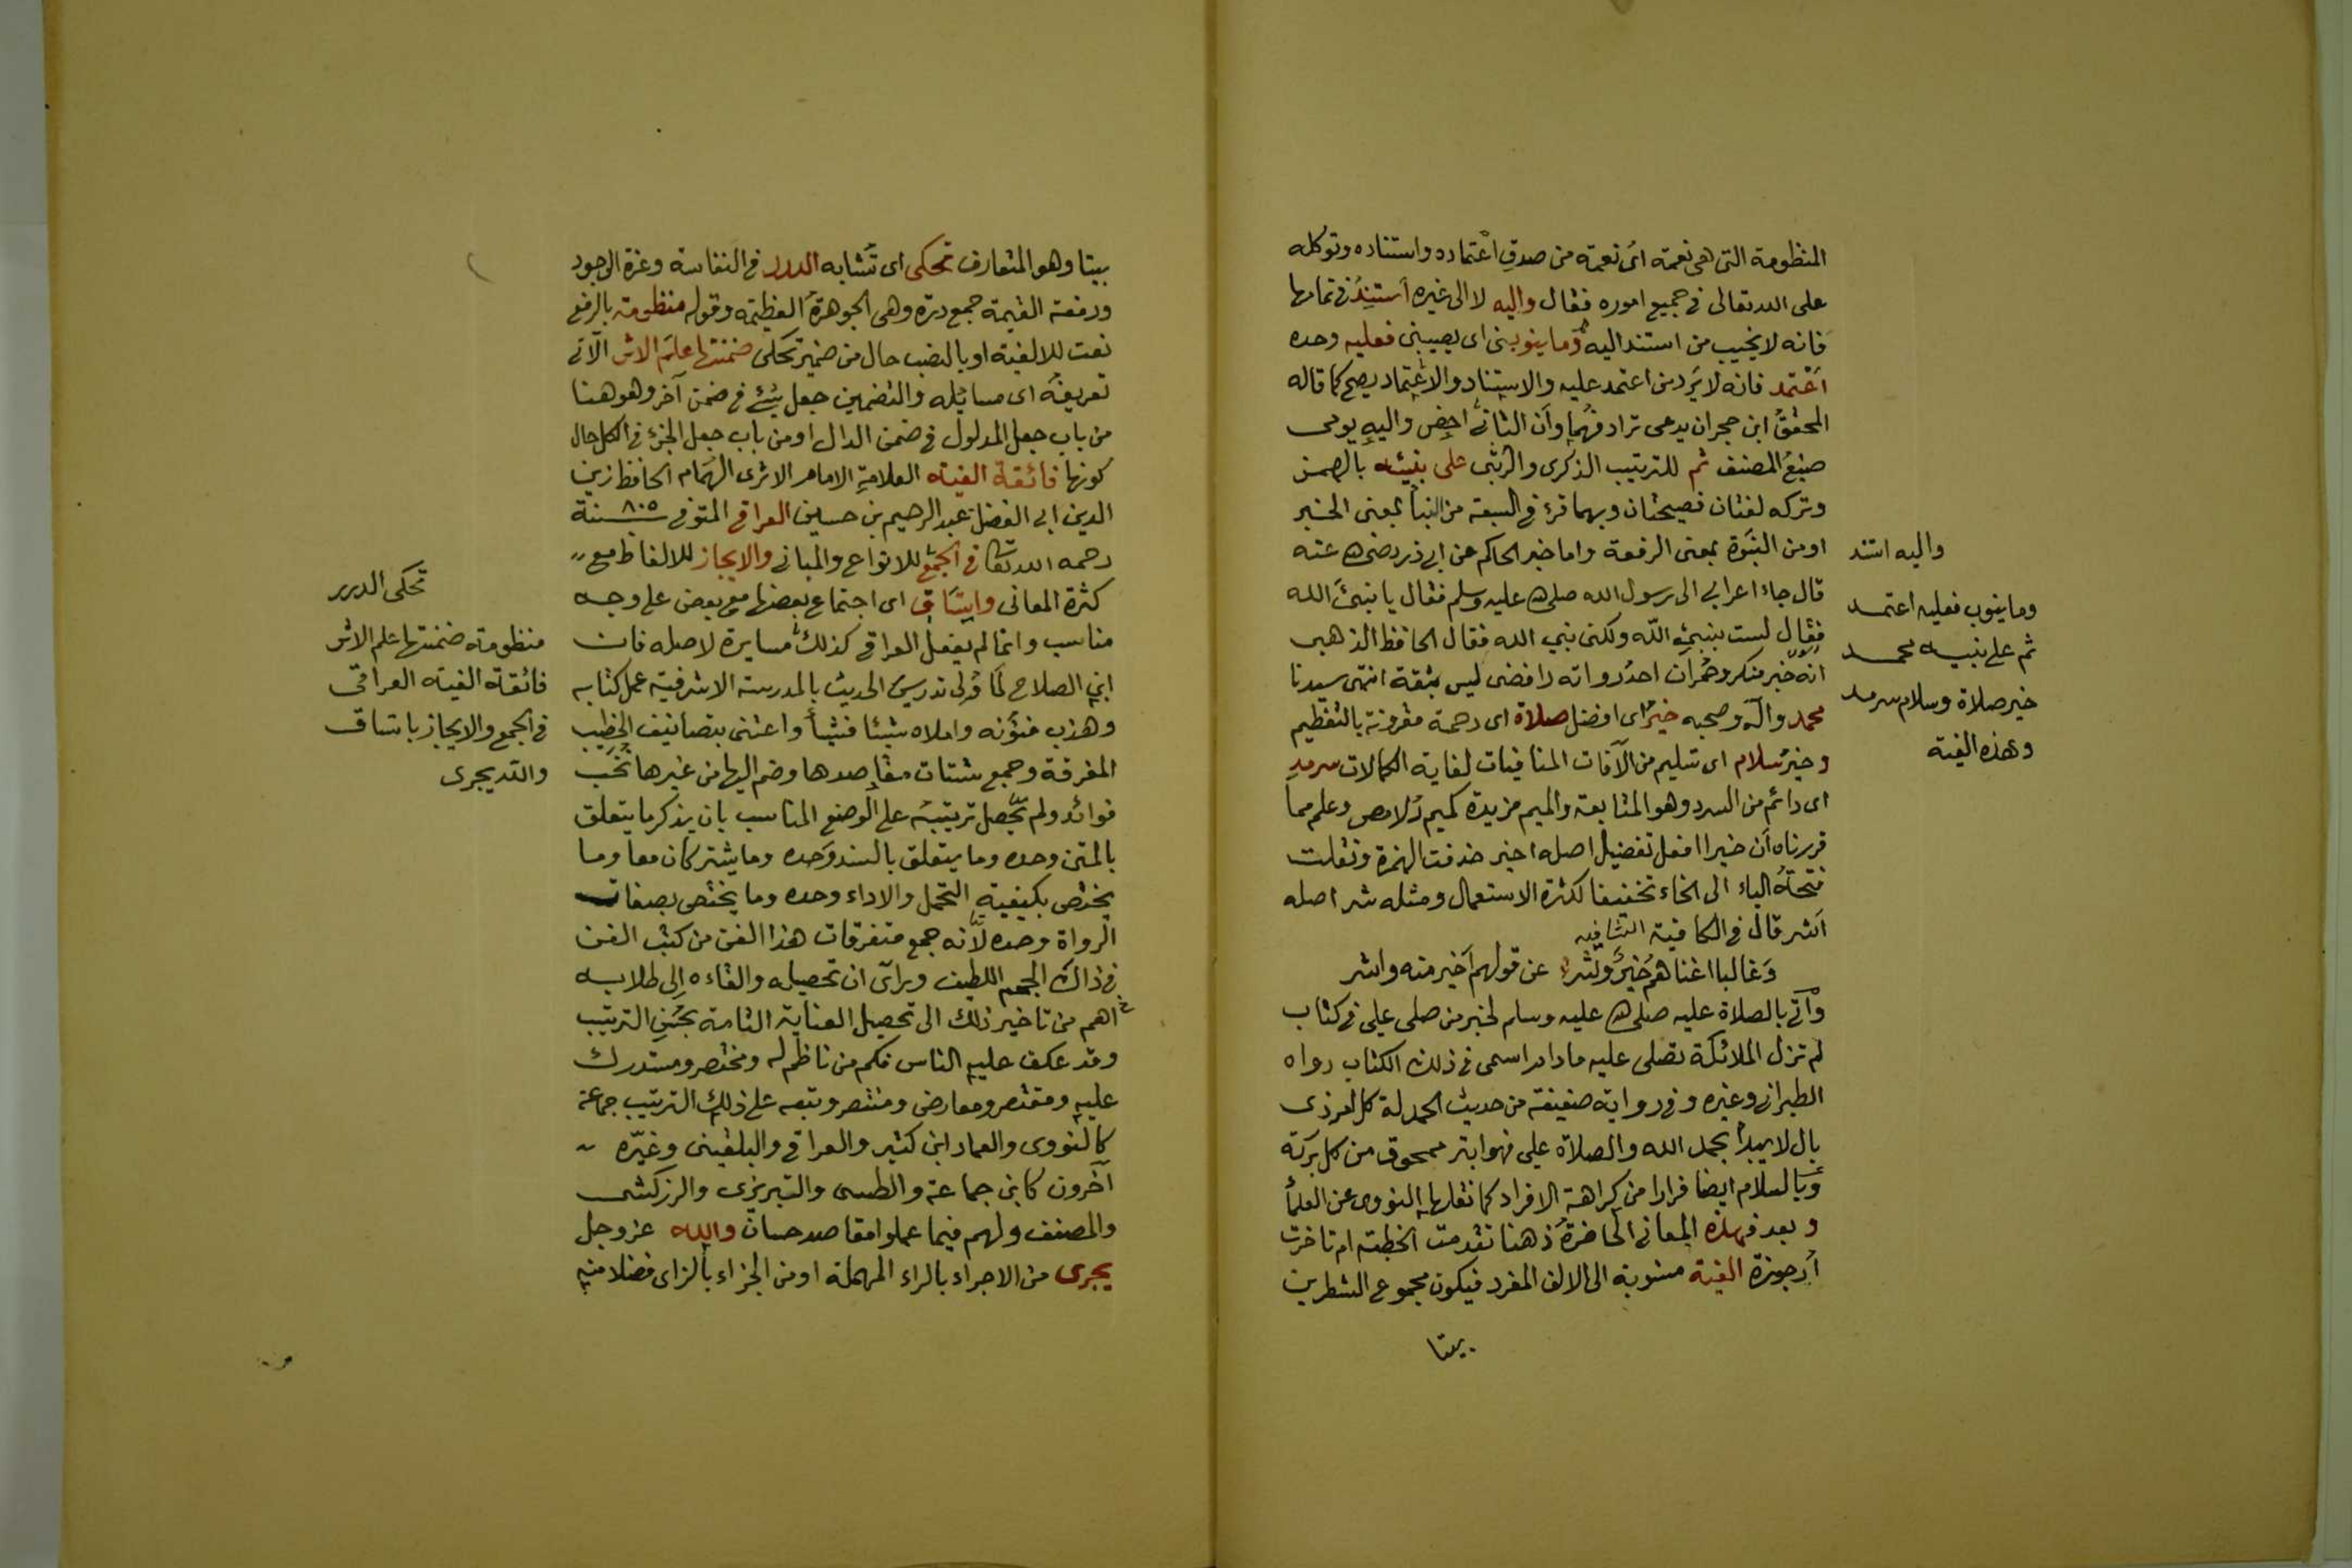 المنظومة التى هى نعمة اىّ نعمة من صدق اعتماده واستناده وتوكله
على الله تعالى فى جميع اموره فقال واليه لا الى غيره أستند فى تمامها
فانه لا يخيب من استند اليه وما ينوبنى اى يصيبنى فعليه وحده
اعتمد فانه لا يرد من اعتمد عليه والاستناد والاعتماد يصح كما قاله
المحقق ابن حجر ان يدعى ترادفهما وأن الثانى اخص واليه يومى
صنيع المصنف ثم للترتيب الذكرى والرتبى على نبيئه بالهمز
وتركه لغتان فصيحتان وبهما قرئ فى السبعة من النبأ بمعنى الخبر
او من النبوة بمعنى الرفعة واما خبر الحاكم عن ابى ذر رضى الله عنه
قال جاء اعرابى الى رسول الله صلى الله عليه وسلم فقال يا نبئ الله
فقال لست بنبئ الله ولكنى نبى الله فقال الحافظ الذهبى
انه خبر منكر وحمران احد رواته رافضى ليس بثقة انتهى سيدنا
محمد وآله وصحبه خير اى افضل صلاة اى رحمة مقرونة بالتعظيم
وخير سلام اى تسليم من الآفات المنافيات لغاية الكمالات سرمد
اى دائم من السرد وهو المتابعة والميم مزيدة كميم دلامص وعلم مما
قررناه أن خيرا افعل تفضيل اصله اخير حذفت الهمزة ونقلت
فتحة الياء الى الخاء تخفيفا لكثرة الاستعمال ومثله شر اصله
اشر قال فى الكافية الشافيه
وغالبا اغناهم خير وشر عن قولهم أخير منه واشر
وآتى بالصلاة عليه صلى الله عليه وسلم لخبر من صلى على فى كتاب
لم تزل الملائكة تصلى عليه ما دام اسمى فى ذلك الكتاب رواه
الطبرانى وغيره وفى رواية ضعيفة من حديث الحمدلة كل امر ذى
بال لا يبدأ بحمد الله والصلاة على فهو ابتر ممحوق من كل بركة
وبالسلام ايضا فرارا من كراهة الافراد كما نقلها النووى عن العلمأ
وبعد فهذه المعانى الحاضرة ذهنا تقدمت الخطبة ام تاخرت
أرجوزة الفية منسوبة الى الالف المفرد فيكون مجموع الشطرين
بيتا
واليه استند
وما ينوب فعليه اعتمد
ثم على نبيه محمد
خير صلاة وسلام سرمد
وهذه الفية
بيتا وهو المتعارف تحكى اى تشابه الدرر فى النفاسة وعزة الوجود
ورفعة القيمة جمع درة وهى الجوهرة العظيمة وقوله منظومة بالرفع
نعت للالفية او بالنصب حال من ضمير تحكى ضمنتها علم الاثر الآتى
تعريفه اى مسائله والتضمين جعل شئ فى ضمن آخر وهو هنا
من باب جعل المدلول فى ضمن الدال او من باب جعل الجزء فى الكل حال
كونها فائقة الفية العلامة الامام الاثرى الهمام الحافظ زين
الدين ابى الفضل عبد الرحيم بن حسين العراقى المتوفى سنة ٨٠٥
رحمه الله تعالى فى الجمع للانواع والمبانى والايجاز للالفاظ مع
كثرة المعانى واتساق اى اجتماع بعضها مع بعض على وجه
مناسب وانما لم يفعل العراقى كذلك مسايرة لاصله فان
ابن الصلاح لما ولى تدريس الحديث بالمدرسة الاشرفية عمل كتابه
وهذب فنونه واملاه شيئا فشيأ واعتنى بتصانيف الخطيب
المفرقة وجمع شتات مقاصدها وضم اليها من غيرها نخب
فوائد ولم يحصل ترتيبه على الوضع المناسب بان يذكر ما يتعلق
بالمتن وحده وما يتعلق بالسند وحده وما يشتركان معا وما
يختص بكيفية التحمل والاداء وحده وما يختص بصفات
الرواة وحده لأنه جمع متفرقات هذا الفن من كتب الفن
فى ذاك الحجم اللطيف وراى ان تحصيله والقاءه الى طلابه
اهم من تاخير ذلك الى تحصيل العناية التامة بحسن الترتيب
وقد عكف عليه الناس فكم من ناظم له ومختصر ومستدرك
عليه ومقتصر ومعارض ومنتصر وتبعه على ذلك الترتيب جماعة
كالنووى والعماد ابن كثير والعراقى والبلقينى وغيّره
آخرون كابن جماعة والطيبى والتبريزى والزركشى
والمصنف ولهم فيما عملوا مقاصد حسان والله عز وجل
يجرى من الاجراء بالراء المهملة او من الجزاء بالزاى فضلا منه
تحكى الدرر
منظومة ضمنتها علم الاثر
فائقة الفية العراقى
فى الجمع والايجاز باتساق
والله يجرى